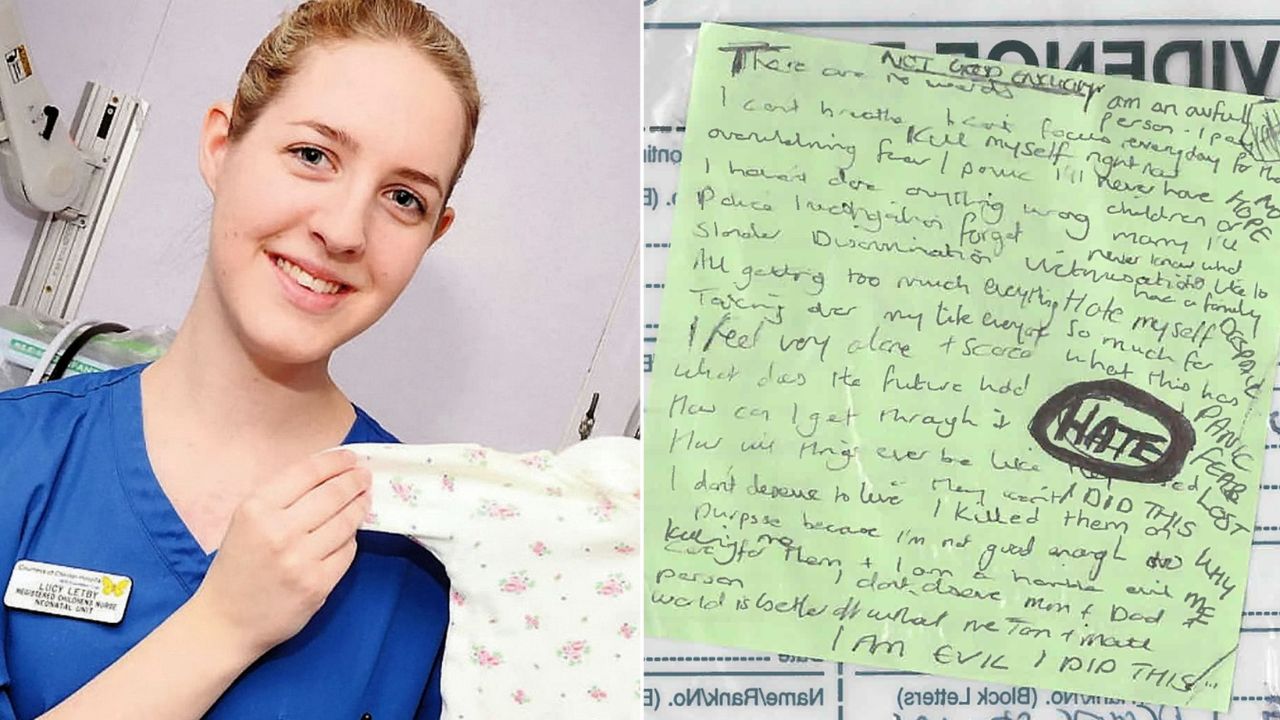 Countess of Chester Hospital
LUCY LETBY
REGISTERED CHILDRENS NURSE
NEONATAL UNIT
VIDENCE
NOT GOOD ENOUGH
There are no words
I am an awful person - I pay everyday for that
I can't breathe I can't focus
Kill myself right now
overwhelming fear / panic
I'll never have children or marry I'll never know what it's like to have a family
NO HOPE
I haven't done anything wrong
Police investigation forget
Slander Discrimination Victimisation
All getting too much everything
Hate myself so much for what this has
DESPAIR
Taking over my life everyday
I feel very alone + scared
What does the future hold
PANIC
How can I get through it
HATE
FEAR
How will things ever be like they
LOST
I DID THIS
WHY ME
I don't deserve to live I killed them on
purpose because I'm not good enough to
care for them + I am a horrible evil
person
killing me
I don't deserve Mum + Dad
world is better off without me Tom + Matt
I AM EVIL I DID THIS
Date
Name/Rank/No.
Rank/No. (Block Letters)